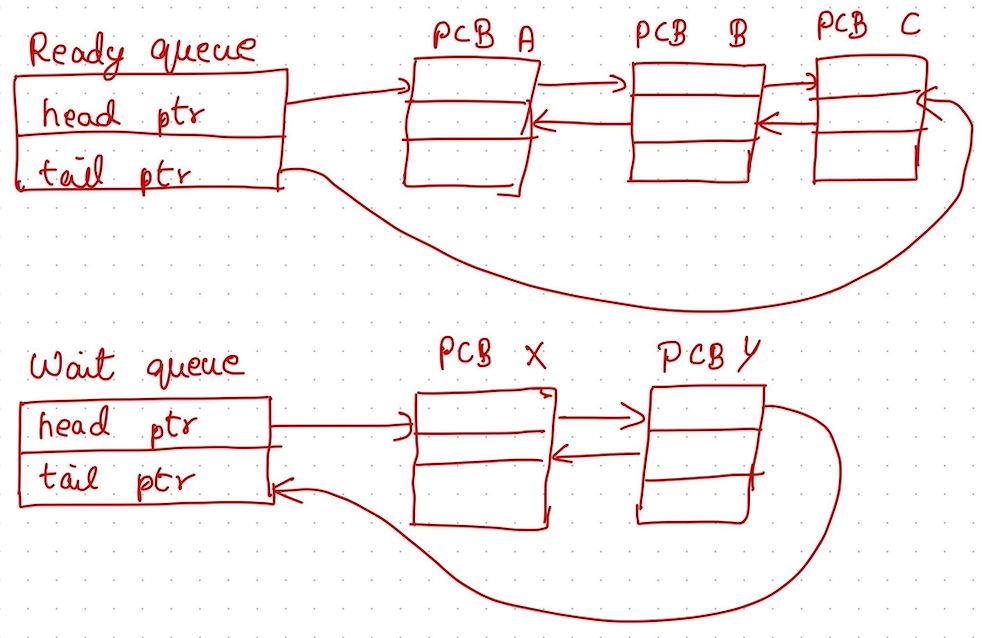 Ready queue
head ptr
tail ptr
PCB A
PCB B
PCB C
Wait queue
head ptr
tail ptr
PCB X
PCB Y